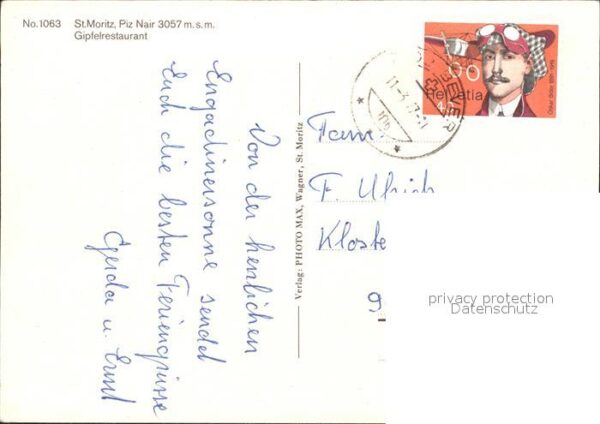 No. 1063 St. Moritz, Piz Nair 3057 m. s. m.
Gipfelrestaurant
Von der herrlichen
Engadinersonne sendet
Euch die besten Feriengrüsse
Gerda u. Ernst
Verlag: PHOTO MAX, Wagner, St. Moritz
Helvetia
Fam.
F. Ulrich
Kloste
9
privacy protection
Datenschutz